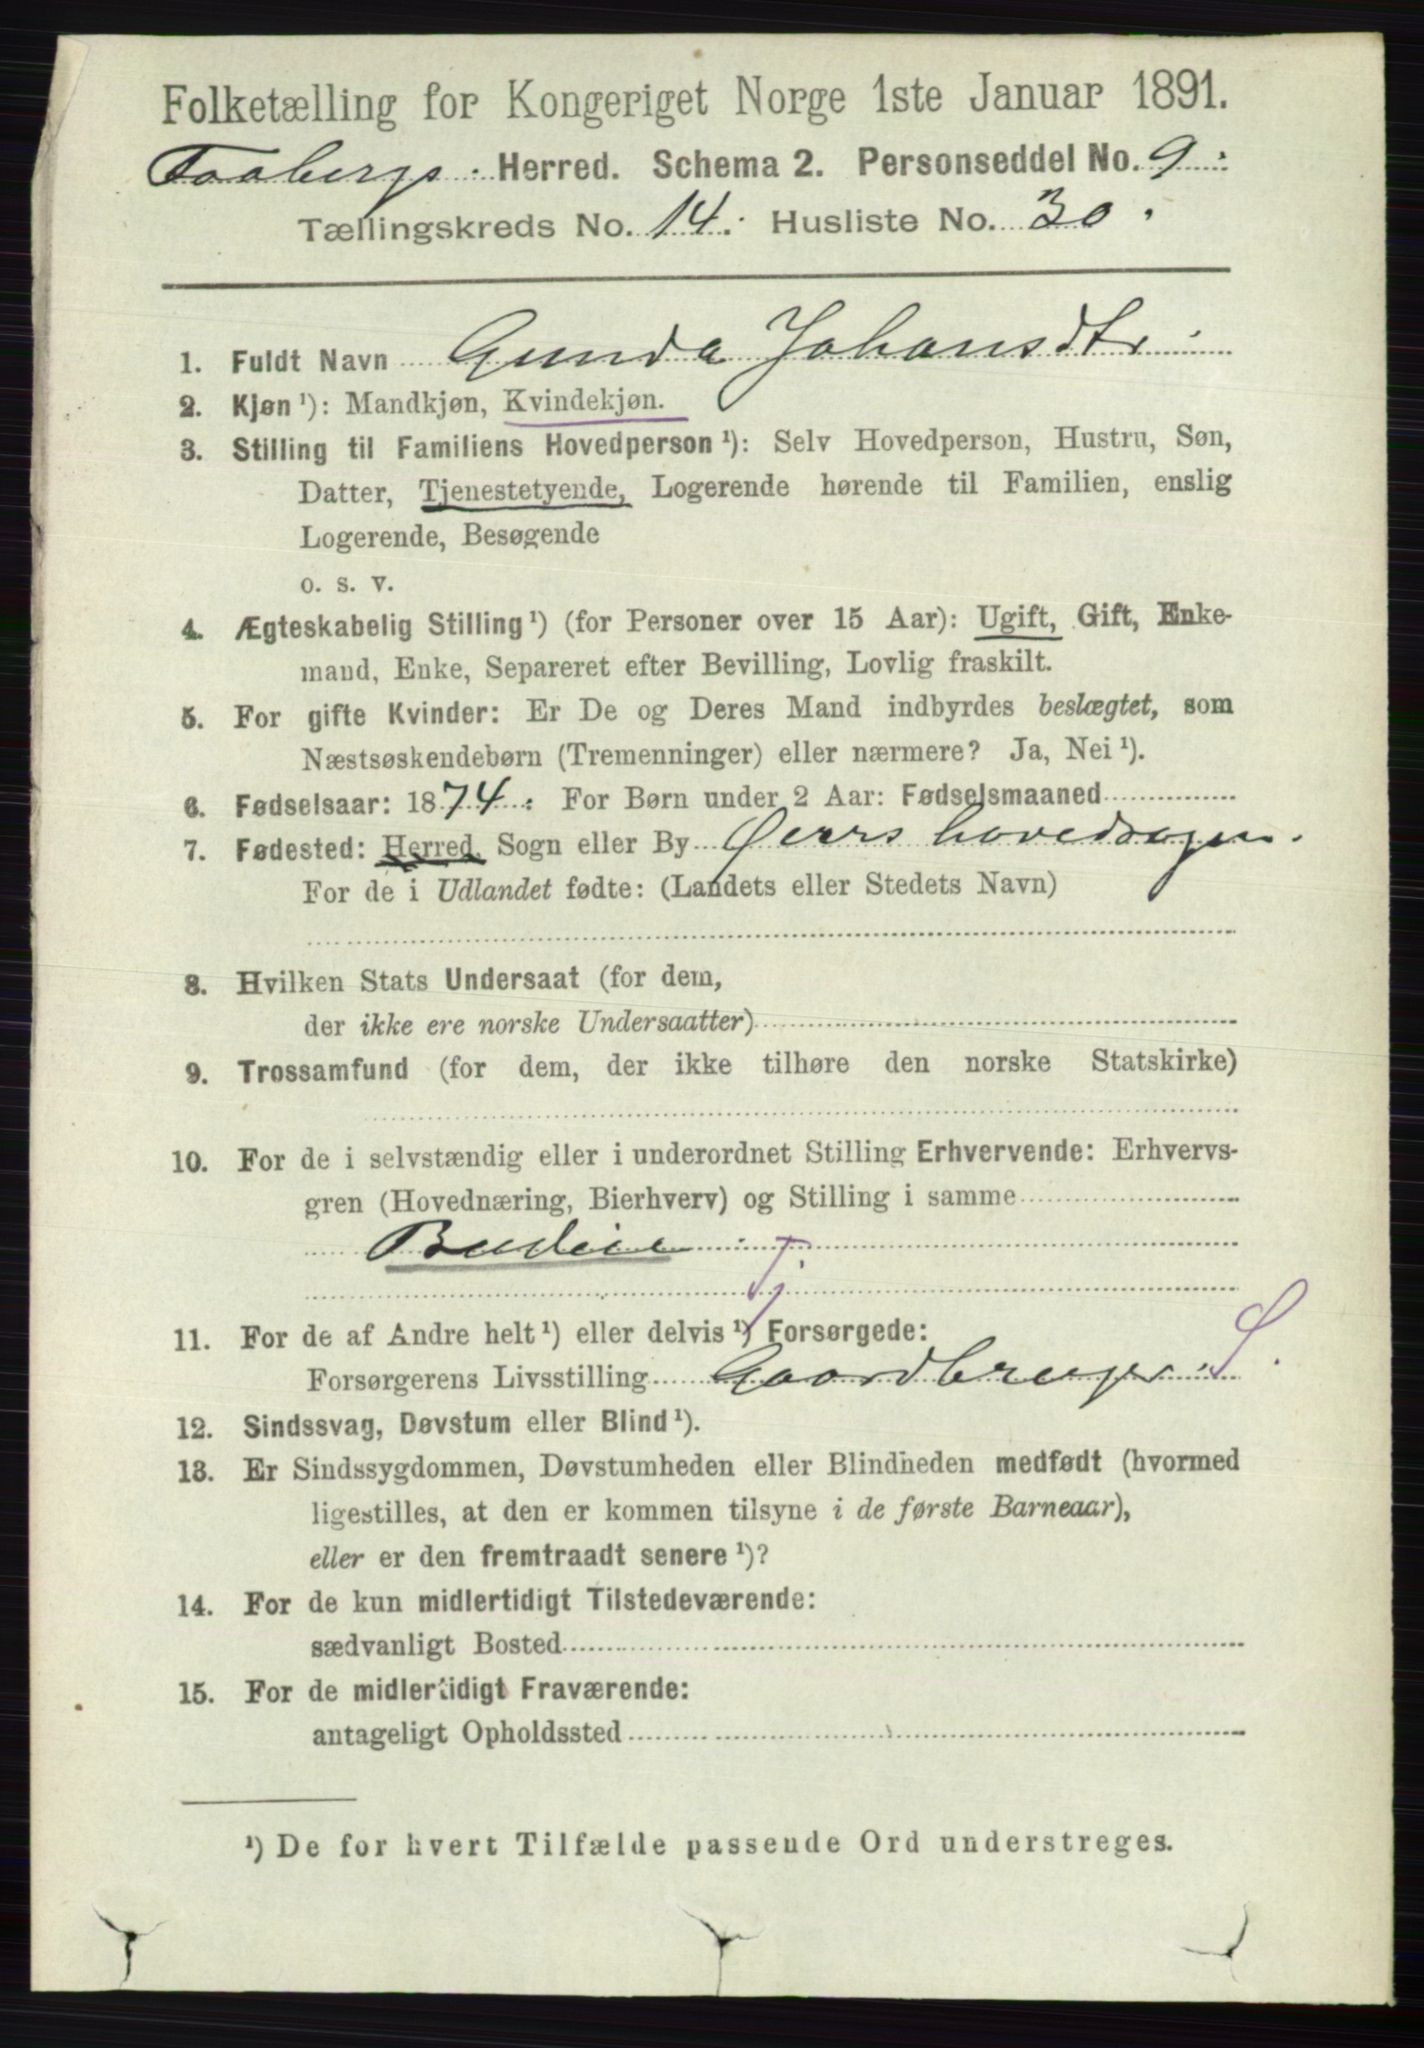 Folketælling for Kongeriget Norge 1ste Januar 1891.
Faabergs Herred. Schema 2. Personseddel No. 9.
Tællingskreds No. 14. Husliste No. 30.
1. Fuldt Navn Gunda Johansdtr.
2. Kjøn ¹): Mandkjøn, Kvindekjøn.
3. Stilling til Familiens Hovedperson ¹): Selv Hovedperson, Hustru, Søn,
Datter, Tjenestetyende, Logerende hørende til Familien, enslig
Logerende, Besøgende
o. s. v.
4. Ægteskabelig Stilling ¹) (for Personer over 15 Aar): Ugift, Gift, Enke-
mand, Enke, Separeret efter Bevilling, Lovlig fraskilt.
5. For gifte Kvinder: Er De og Deres Mand indbyrdes beslægtet, som
Næstsøskendebørn (Tremenninger) eller nærmere? Ja, Nei ¹).
6. Fødselsaar: 1874. For Børn under 2 Aar: Fødselsmaaned
7. Fødested: Herred, Sogn eller By hovedsogn.
For de i Udlandet fødte: (Landets eller Stedets Navn)
8. Hvilken Stats Undersaat (for dem,
der ikke ere norske Undersaatter)
9. Trossamfund (for dem, der ikke tilhøre den norske Statskirke)
10. For de i selvstændig eller i underordnet Stilling Erhvervende: Erhvervs-
gren (Hovednæring, Bierhverv) og Stilling i samme
Budeie
Tj.
11. For de af Andre helt ¹) eller delvis ¹) Forsørgede:
Forsørgerens Livsstilling Gaardbruger. S.
12. Sindssvag, Døvstum eller Blind ¹).
13. Er Sindssygdommen, Døvstumheden eller Blindheden medfødt (hvormed
ligestilles, at den er kommen tilsyne i de første Barneaar),
eller er den fremtraadt senere ¹)?
14. For de kun midlertidigt Tilstedeværende:
sædvanligt Bosted
15. For de midlertidigt Fraværende:
antageligt Opholdssted
¹) De for hvert Tilfælde passende Ord understreges.